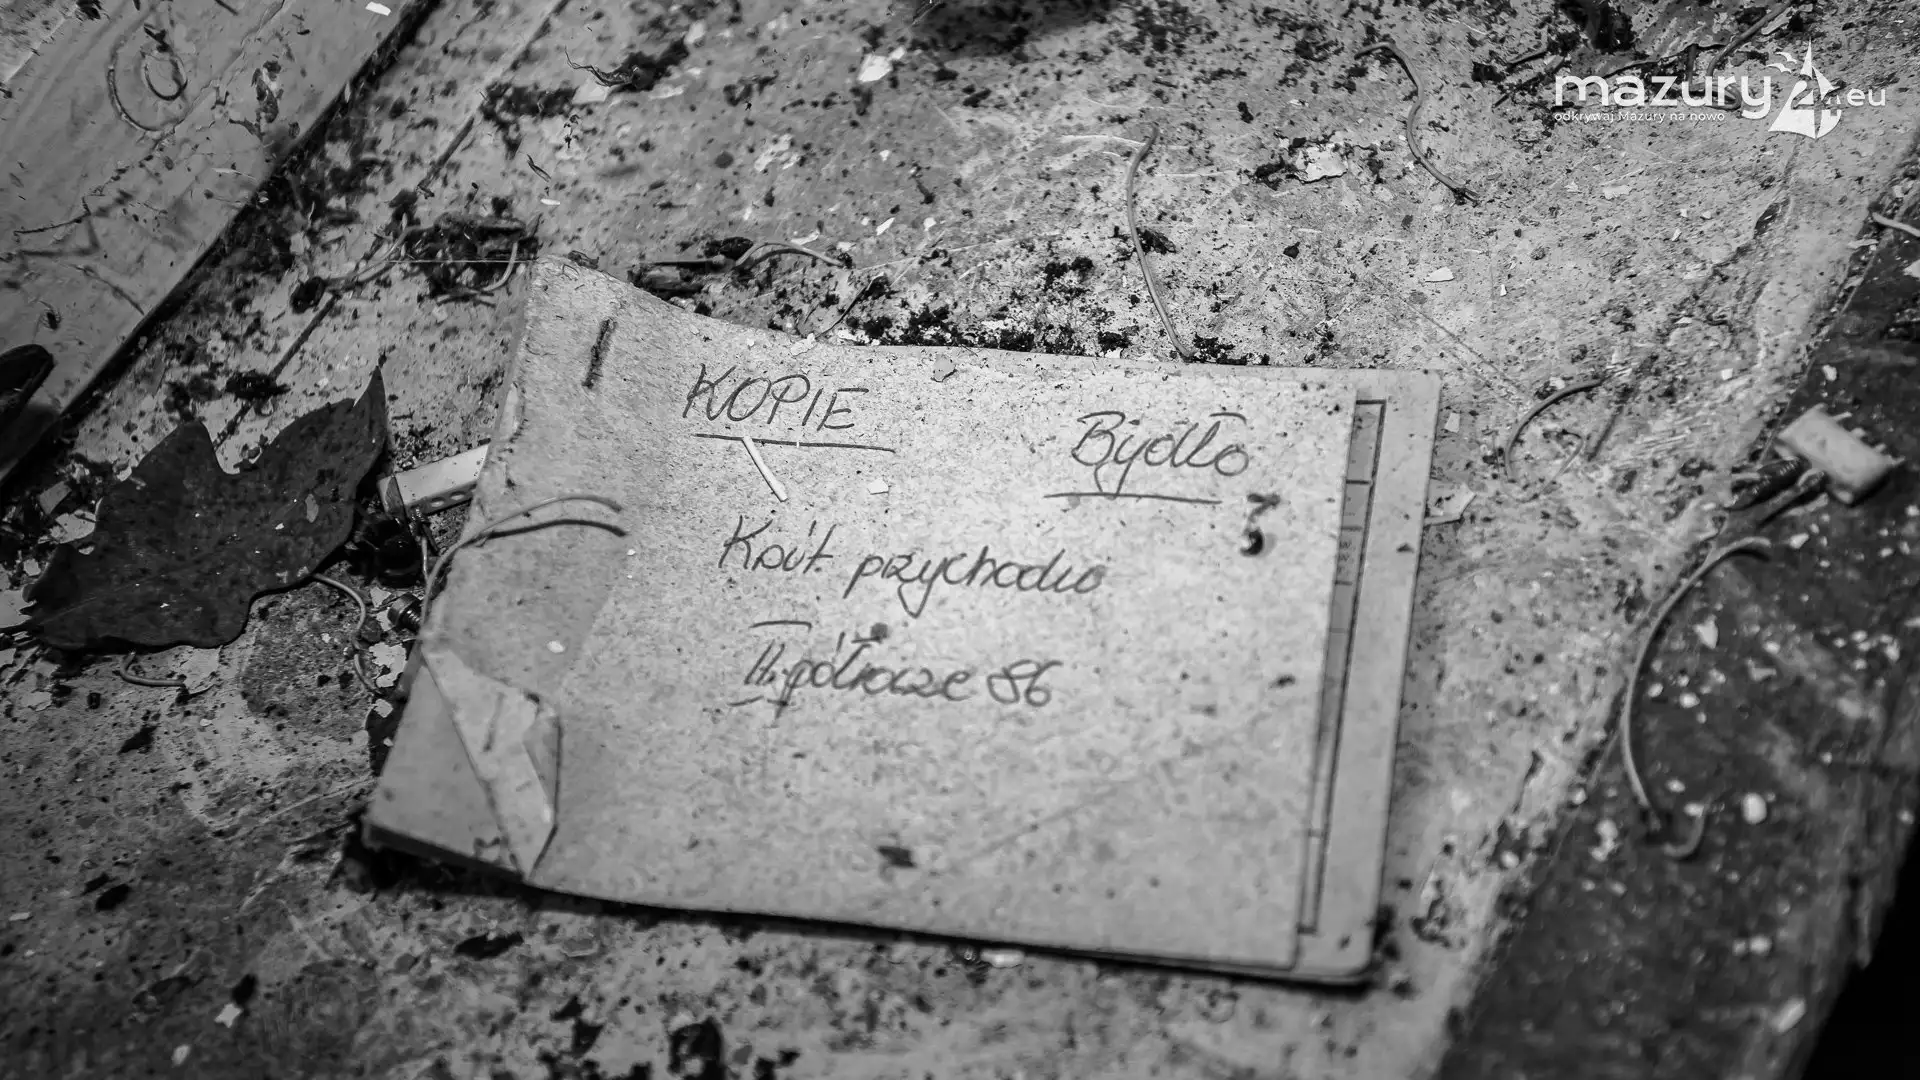 mazury24.eu
odkrywaj Mazury na nowo
KOPIE Bydło
Kwit. przychodu
II. półrocze 86